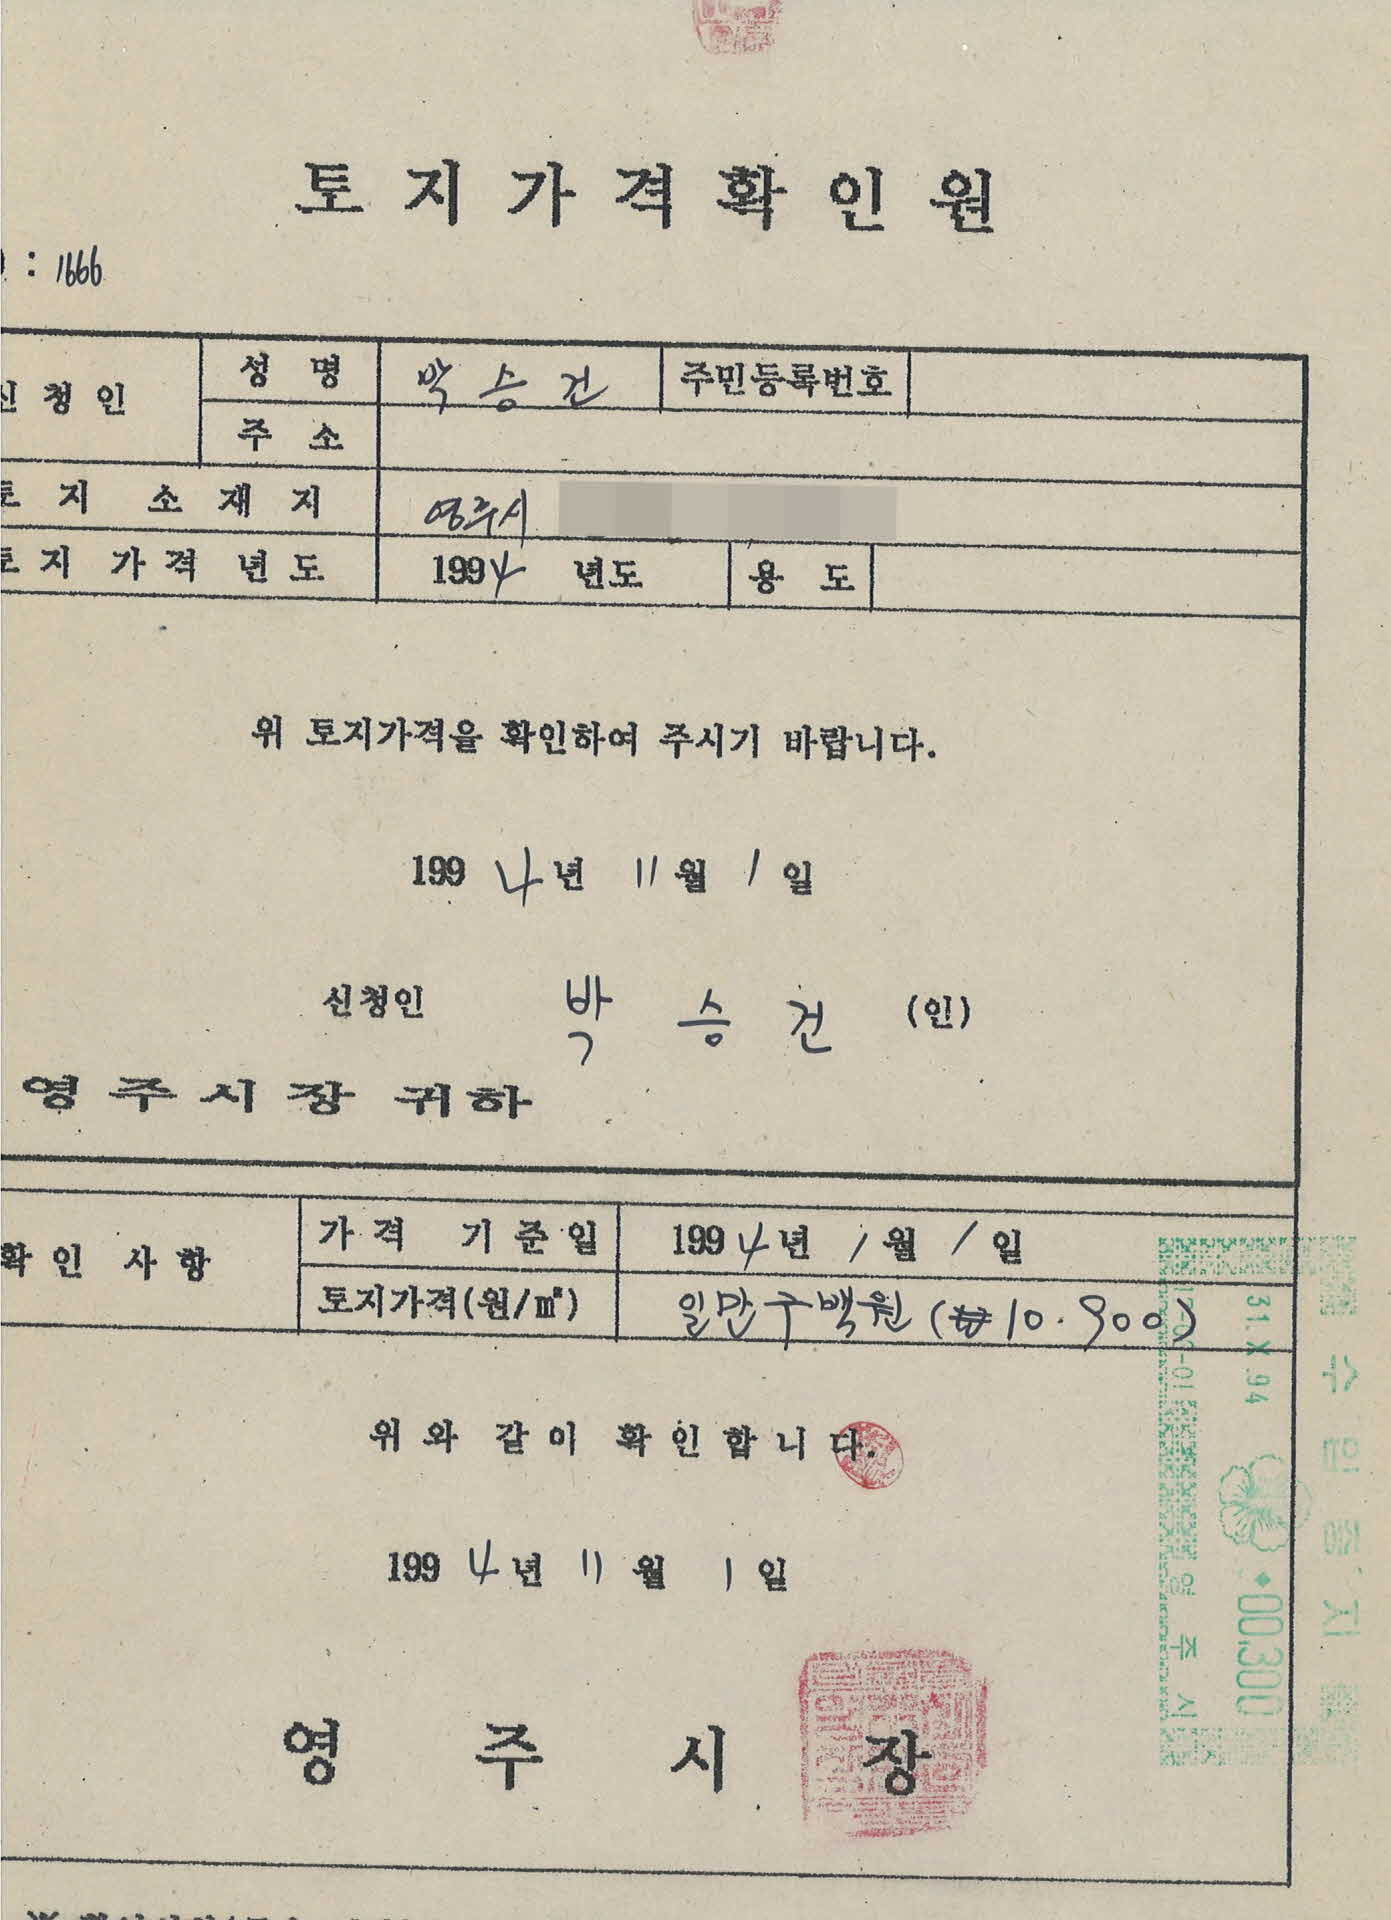 토지가격확인원
: 1666
신청인 성명 박승건 주민등록번호
주소
토지 소재지 영주시
토지가격년도 1994 년도 용도
위 토지가격을 확인하여 주시기 바랍니다.
1994년 11월 1일
신청인 박승건 (인)
영주시장 귀하
확인 사항 가격 기준일 1994년 1월 1일
토지가격(원/㎡) 일만구백원 (₩10.900)
위와 같이 확인합니다.
1994년 11월 1일
영주시장
수입증지
31.X.94
00.300
영주시